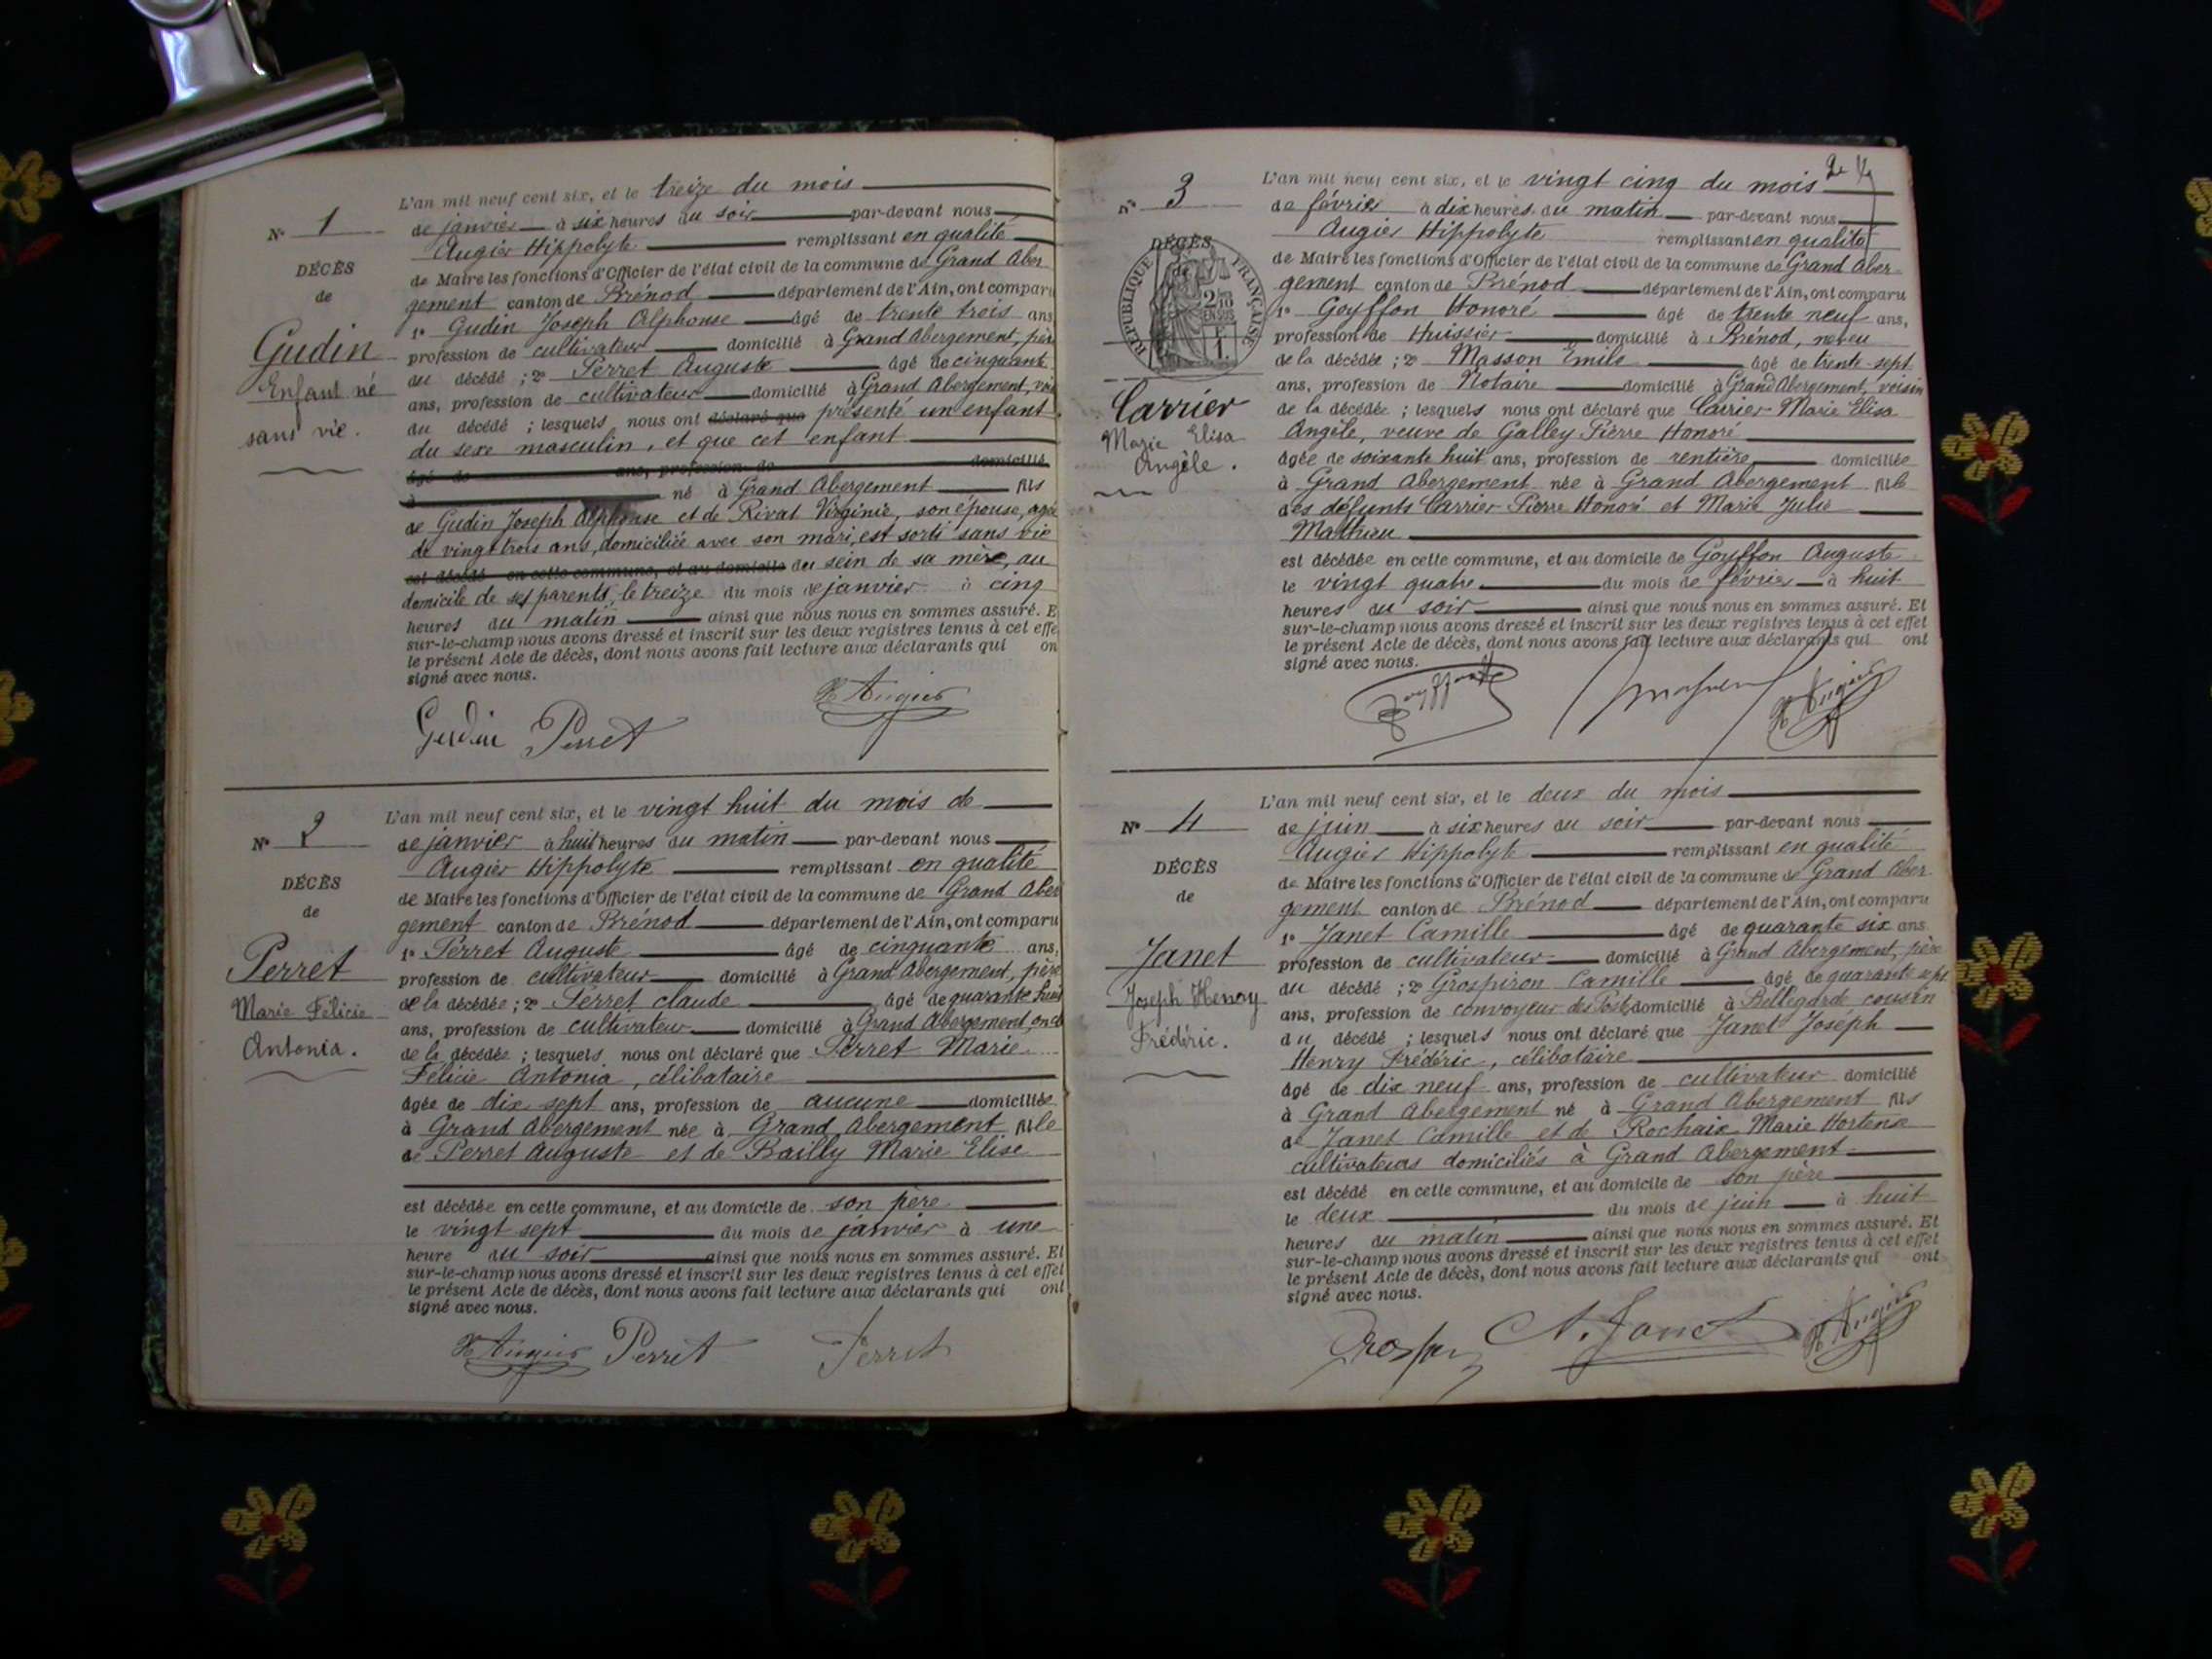 L'an mil neuf cent six, et le treize du mois
N° 1
de janvier à six heures du soir par-devant nous
Augier Hippolyte remplissant en qualité
DÉCÈS
de Maire les fonctions d'Officier de l'état civil de la commune de Grand Aber
de
gement canton de Brénod département de l'Ain, ont comparu
1° Gudin Joseph Alphonse âgé de trente trois ans
Gudin
profession de cultivateur domicilié à Grand Abergement, père
du décédé ; 2° Perret Auguste âgé de cinquante
Enfant né
ans, profession de cultivateur domicilié à Grand Abergement, voisin
sans vie.
du décédé ; lesquels nous ont déclaré que présenté un enfant
du sexe masculin, et que cet enfant
âgé de ans, profession de domicilié
à né à Grand Abergement fils
de Gudin Joseph Alphonse et de Rivat Virginie, son épouse, agée
de vingt trois ans, domiciliée avec son mari, est sorti sans vie
est décédé en cette commune, et au domicile du sein de sa mère, au
domicile de ses parents, le treize du mois de janvier à cinq
heures du matin ainsi que nous nous en sommes assuré. E
sur-le-champ nous avons dressé et inscrit sur les deux registres tenus à cet effe
le présent Acte de décès, dont nous avons fait lecture aux déclarants qui on
signé avec nous.
Gudin Perret H Augier
L'an mil neuf cent six, et le vingt huit du mois de
N° 2
de janvier à huit heures du matin par-devant nous
Augier Hippolyte remplissant en qualité
DÉCÈS
de Maire les fonctions d'Officier de l'état civil de la commune de Grand Aber
de
gement canton de Brénod département de l'Ain, ont comparu
1° Perret Auguste âgé de cinquante ans,
Perret
profession de cultivateur domicilié à Grand Abergement, père
de la décédée ; 2° Perret claude âgé de quarante huit
Marie Félicie
ans, profession de cultivateur domicilié à Grand Abergement oncle
Antonia.
de la décédée ; lesquels nous ont déclaré que Perret Marie
Félicie Antonia, célibataire
âgée de dix sept ans, profession de aucune domiciliée
à Grand Abergement née à Grand Abergement fille
de Perret Auguste et de Bailly Marie Elise
est décédée en cette commune, et au domicile de son père
le vingt sept du mois de janvier à une
heure du soir ainsi que nous nous en sommes assuré. Et
sur-le-champ nous avons dressé et inscrit sur les deux registres tenus à cet effet
le présent Acte de décès, dont nous avons fait lecture aux déclarants qui ont
signé avec nous.
H Augier Perret Perret
L'an mil neuf cent six, et le vingt cinq du mois
N° 3
de février à dix heures du matin par-devant nous
Augier Hippolyte remplissant en qualité
DÉCÈS
de
RÉPUBLIQUE FRANÇAISE
2/10 EN SUS
1 F.
de Maire les fonctions d'Officier de l'état civil de la commune de Grand Aber
gement canton de Brénod département de l'Ain, ont comparu
1° Goyffon Honoré âgé de trente neuf ans,
profession de Huissier domicilié à Brénod, neveu
de la décédée ; 2° Masson Emile âgé de trente sept
ans, profession de Notaire domicilié à Grand Abergement voisin
Carrier
de la décédée ; lesquels nous ont déclaré que Carrier Marie Elisa
Marie Elisa
Angèle, veuve de Galley Pierre Honoré
Angèle.
âgée de soixante huit ans, profession de rentière domiciliée
à Grand Abergement née à Grand Abergement fille
des défunts Carrier Pierre Honoré et Marie Julie
Mathieu
est décédée en cette commune, et au domicile de Goyffon Auguste
le vingt quatre du mois de février à huit
heures du soir ainsi que nous nous en sommes assuré. Et
sur-le-champ nous avons dressé et inscrit sur les deux registres tenus à cet effet
le présent Acte de décès, dont nous avons fait lecture aux déclarants qui ont
signé avec nous.
H Augier
L'an mil neuf cent six, et le deux du mois
N° 4
de juin à six heures du soir par-devant nous
Augier Hippolyte remplissant en qualité
DÉCÈS
de Maire les fonctions d'Officier de l'état civil de la commune de Grand Aber
de
gement canton de Brénod département de l'Ain, ont comparu
1° Janet Camille âgé de quarante six ans
Janet
profession de cultivateur domicilié à Grand Abergement, père
du décédé ; 2° Grospiron Camille âgé de quarante sept
Joseph Henry
ans, profession de convoyeur des Postes domicilié à Bellegarde cousin
Frédéric.
du décédé ; lesquels nous ont déclaré que Janet Joséph
Henry Frédéric, célibataire
âgé de dix neuf ans, profession de cultivateur domicilié
à Grand Abergement né à Grand Abergement fils
de Janet Camille et de Rochaix Marie Hortense
cultivateurs domiciliés à Grand Abergement
est décédé en cette commune, et au domicile de son père
le deux du mois de juin à huit
heures du matin ainsi que nous nous en sommes assuré. Et
sur-le-champ nous avons dressé et inscrit sur les deux registres tenus à cet effet
le présent Acte de décès, dont nous avons fait lecture aux déclarants qui ont
signé avec nous.
Janet H Augier